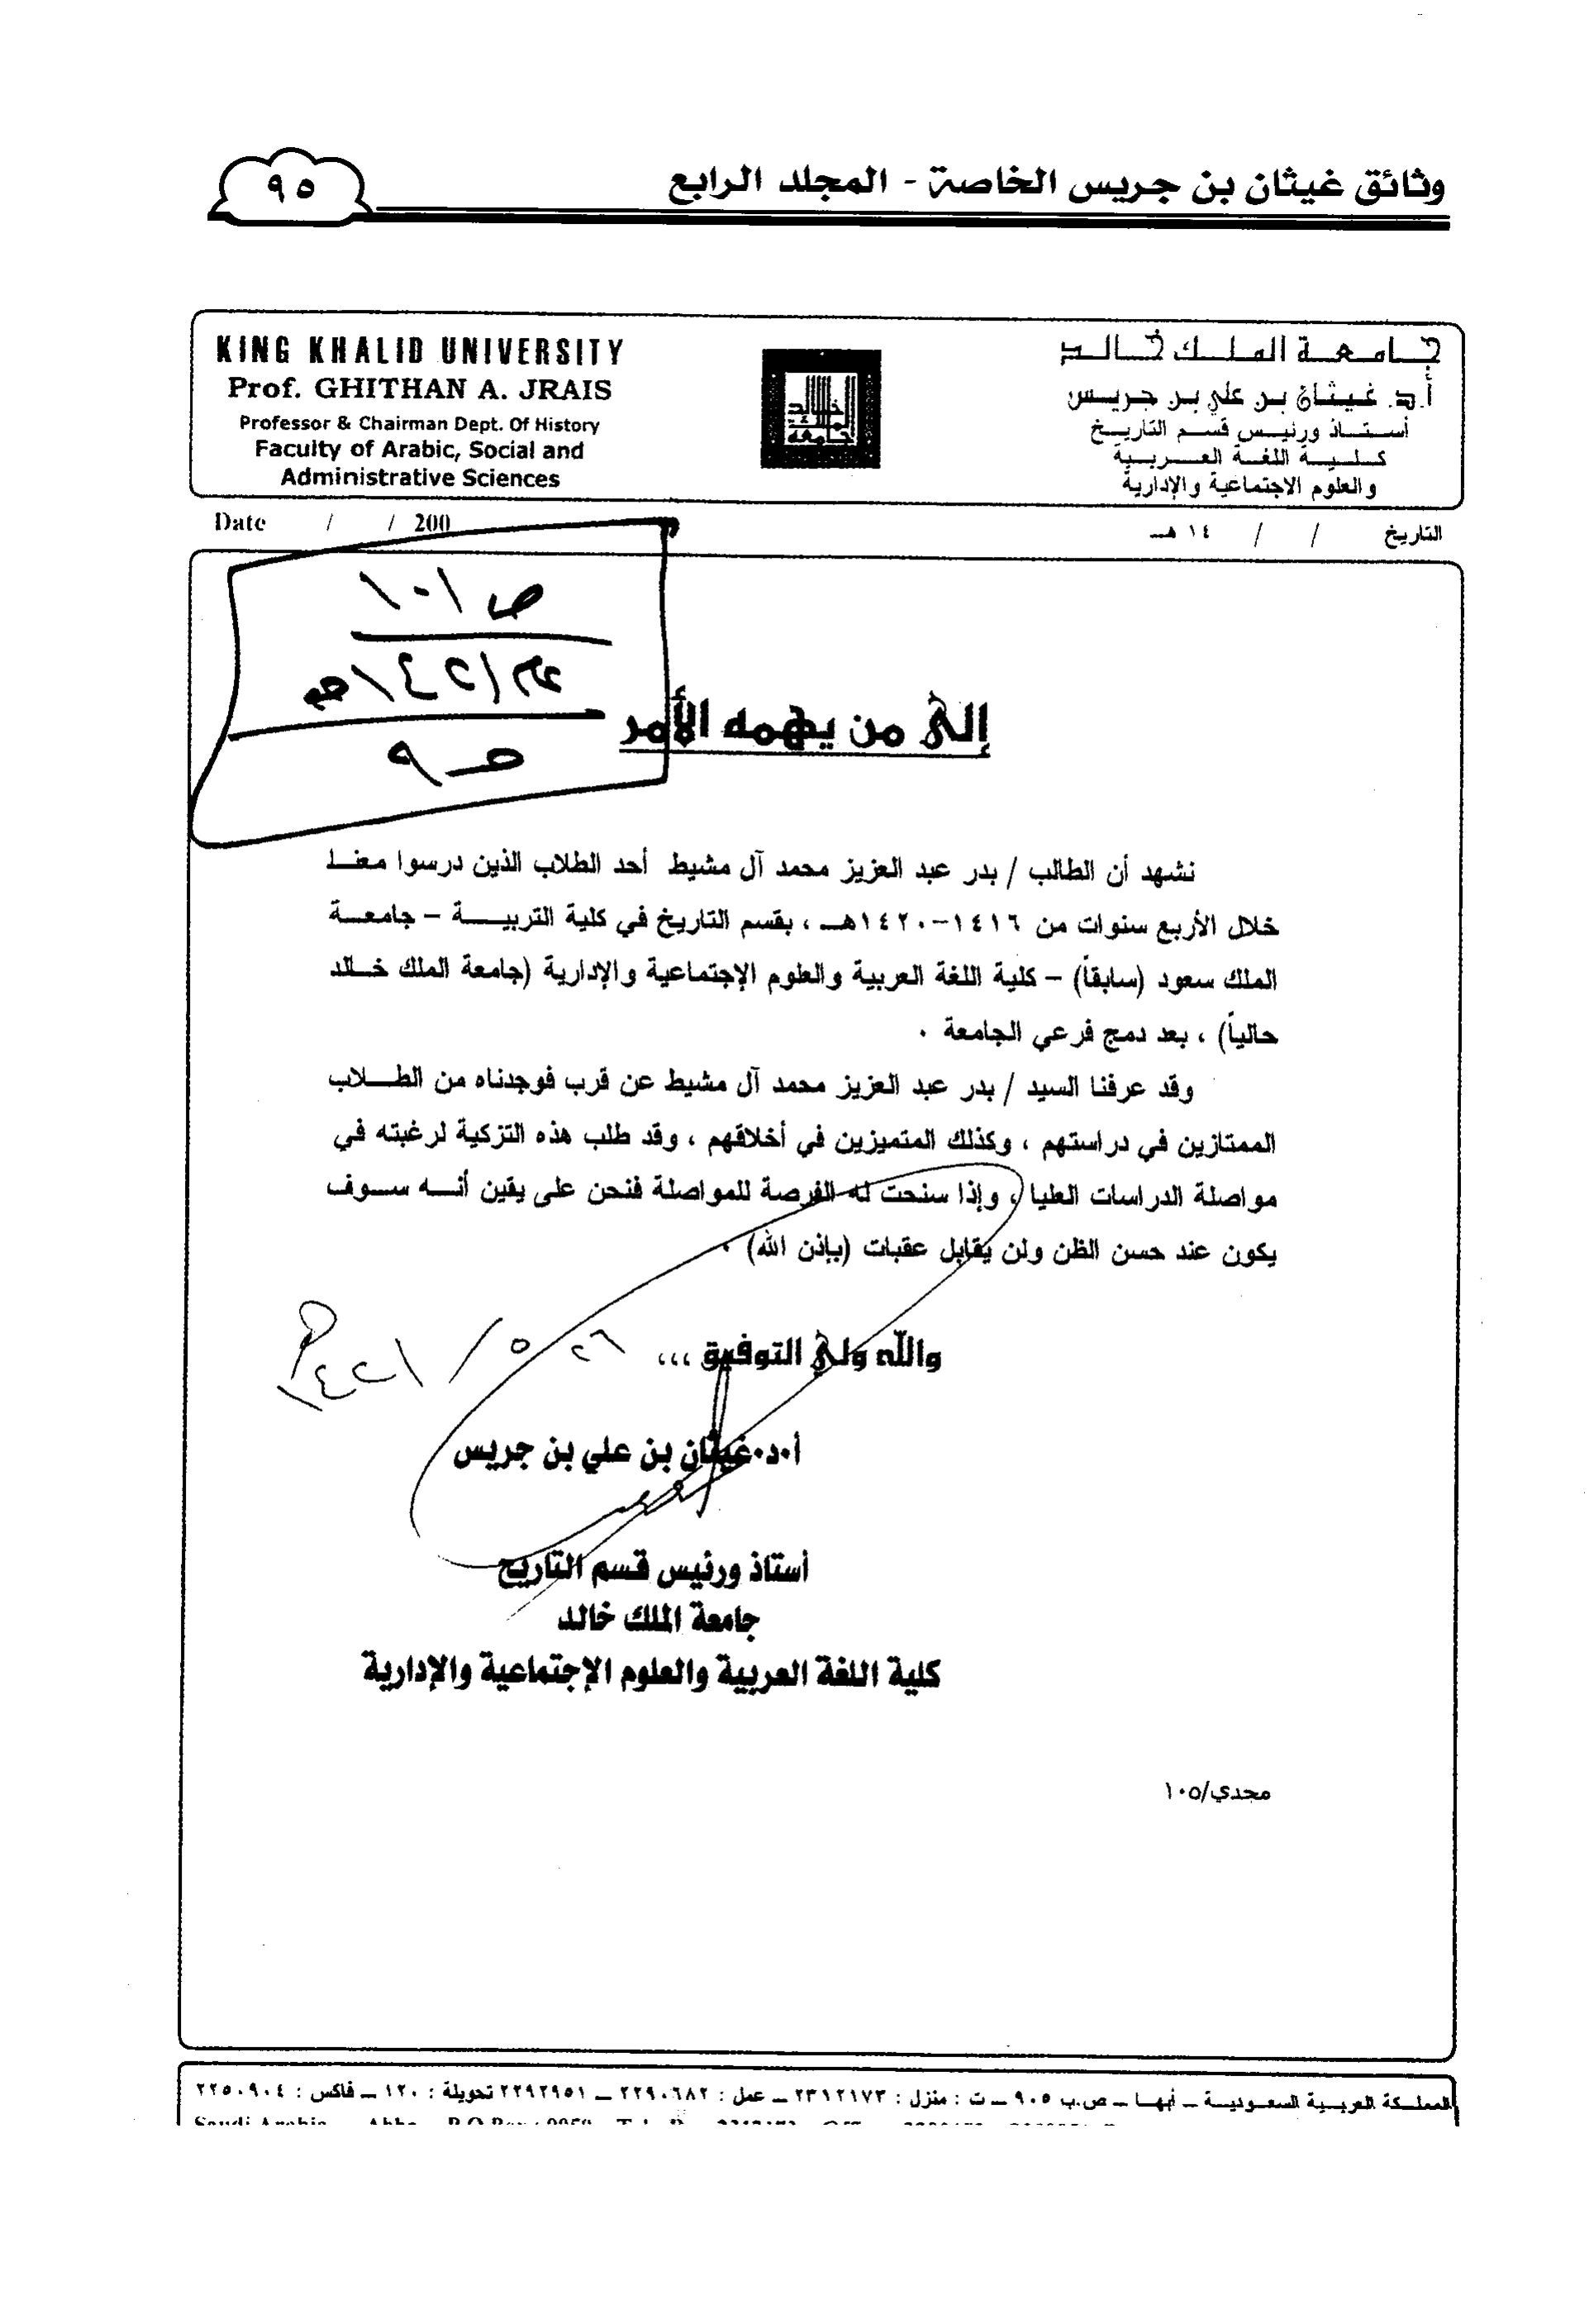 وثائق غيثان بن جريس الخاصة - المجلد الرابع
٩٥
KING KHALID UNIVERSITY
Prof. GHITHAN A. JRAIS
Professor & Chairman Dept. Of History
Faculty of Arabic, Social and
Administrative Sciences
جامعة الملك خالد
أ.د. غيثان بن علي بن جريس
أستاذ ورئيس قسم التاريخ
كلية اللغة العربية
والعلوم الاجتماعية والإدارية
Date / / 200
التاريخ / / ١٤ هـ
ص ١٠١
ص ٩
إلى من يهمه الأمر
نشهد أن الطالب / بدر عبد العزيز محمد آل مشيط أحد الطلاب الذين درسوا معنا
خلال الأربع سنوات من ١٤١٦-١٤٢٠هـ ، بقسم التاريخ في كلية التربية – جامعة
الملك سعود (سابقاً) – كلية اللغة العربية والعلوم الإجتماعية والإدارية (جامعة الملك خالد
حالياً) ، بعد دمج فرعي الجامعة .
وقد عرفنا السيد / بدر عبد العزيز محمد آل مشيط عن قرب فوجدناه من الطلاب
الممتازين في دراستهم ، وكذلك المتميزين في أخلاقهم ، وقد طلب هذه التزكية لرغبته في
مواصلة الدراسات العليا ، وإذا سنحت له الفرصة للمواصلة فنحن على يقين أنه سوف
يكون عند حسن الظن ولن يقابل عقبات (بإذن الله) .
والله ولي التوفيق ،،،
٢٦ / ٥ / ١٤٢١هـ
أ.د.غيثان بن علي بن جريس
أستاذ ورئيس قسم التاريخ
جامعة الملك خالد
كلية اللغة العربية والعلوم الإجتماعية والإدارية
مجدي/١٠٥
المملكة العربية السعودية – أبها – ص.ب ٩٠٥ – ت : منزل : ٢٣١٢١٧٣ – عمل : ٢٢٩٠٦٨٢ – ٢٢٩٢٩٥١ تحويلة : ١٢٠ – فاكس : ٢٢٥٠٩٠٤